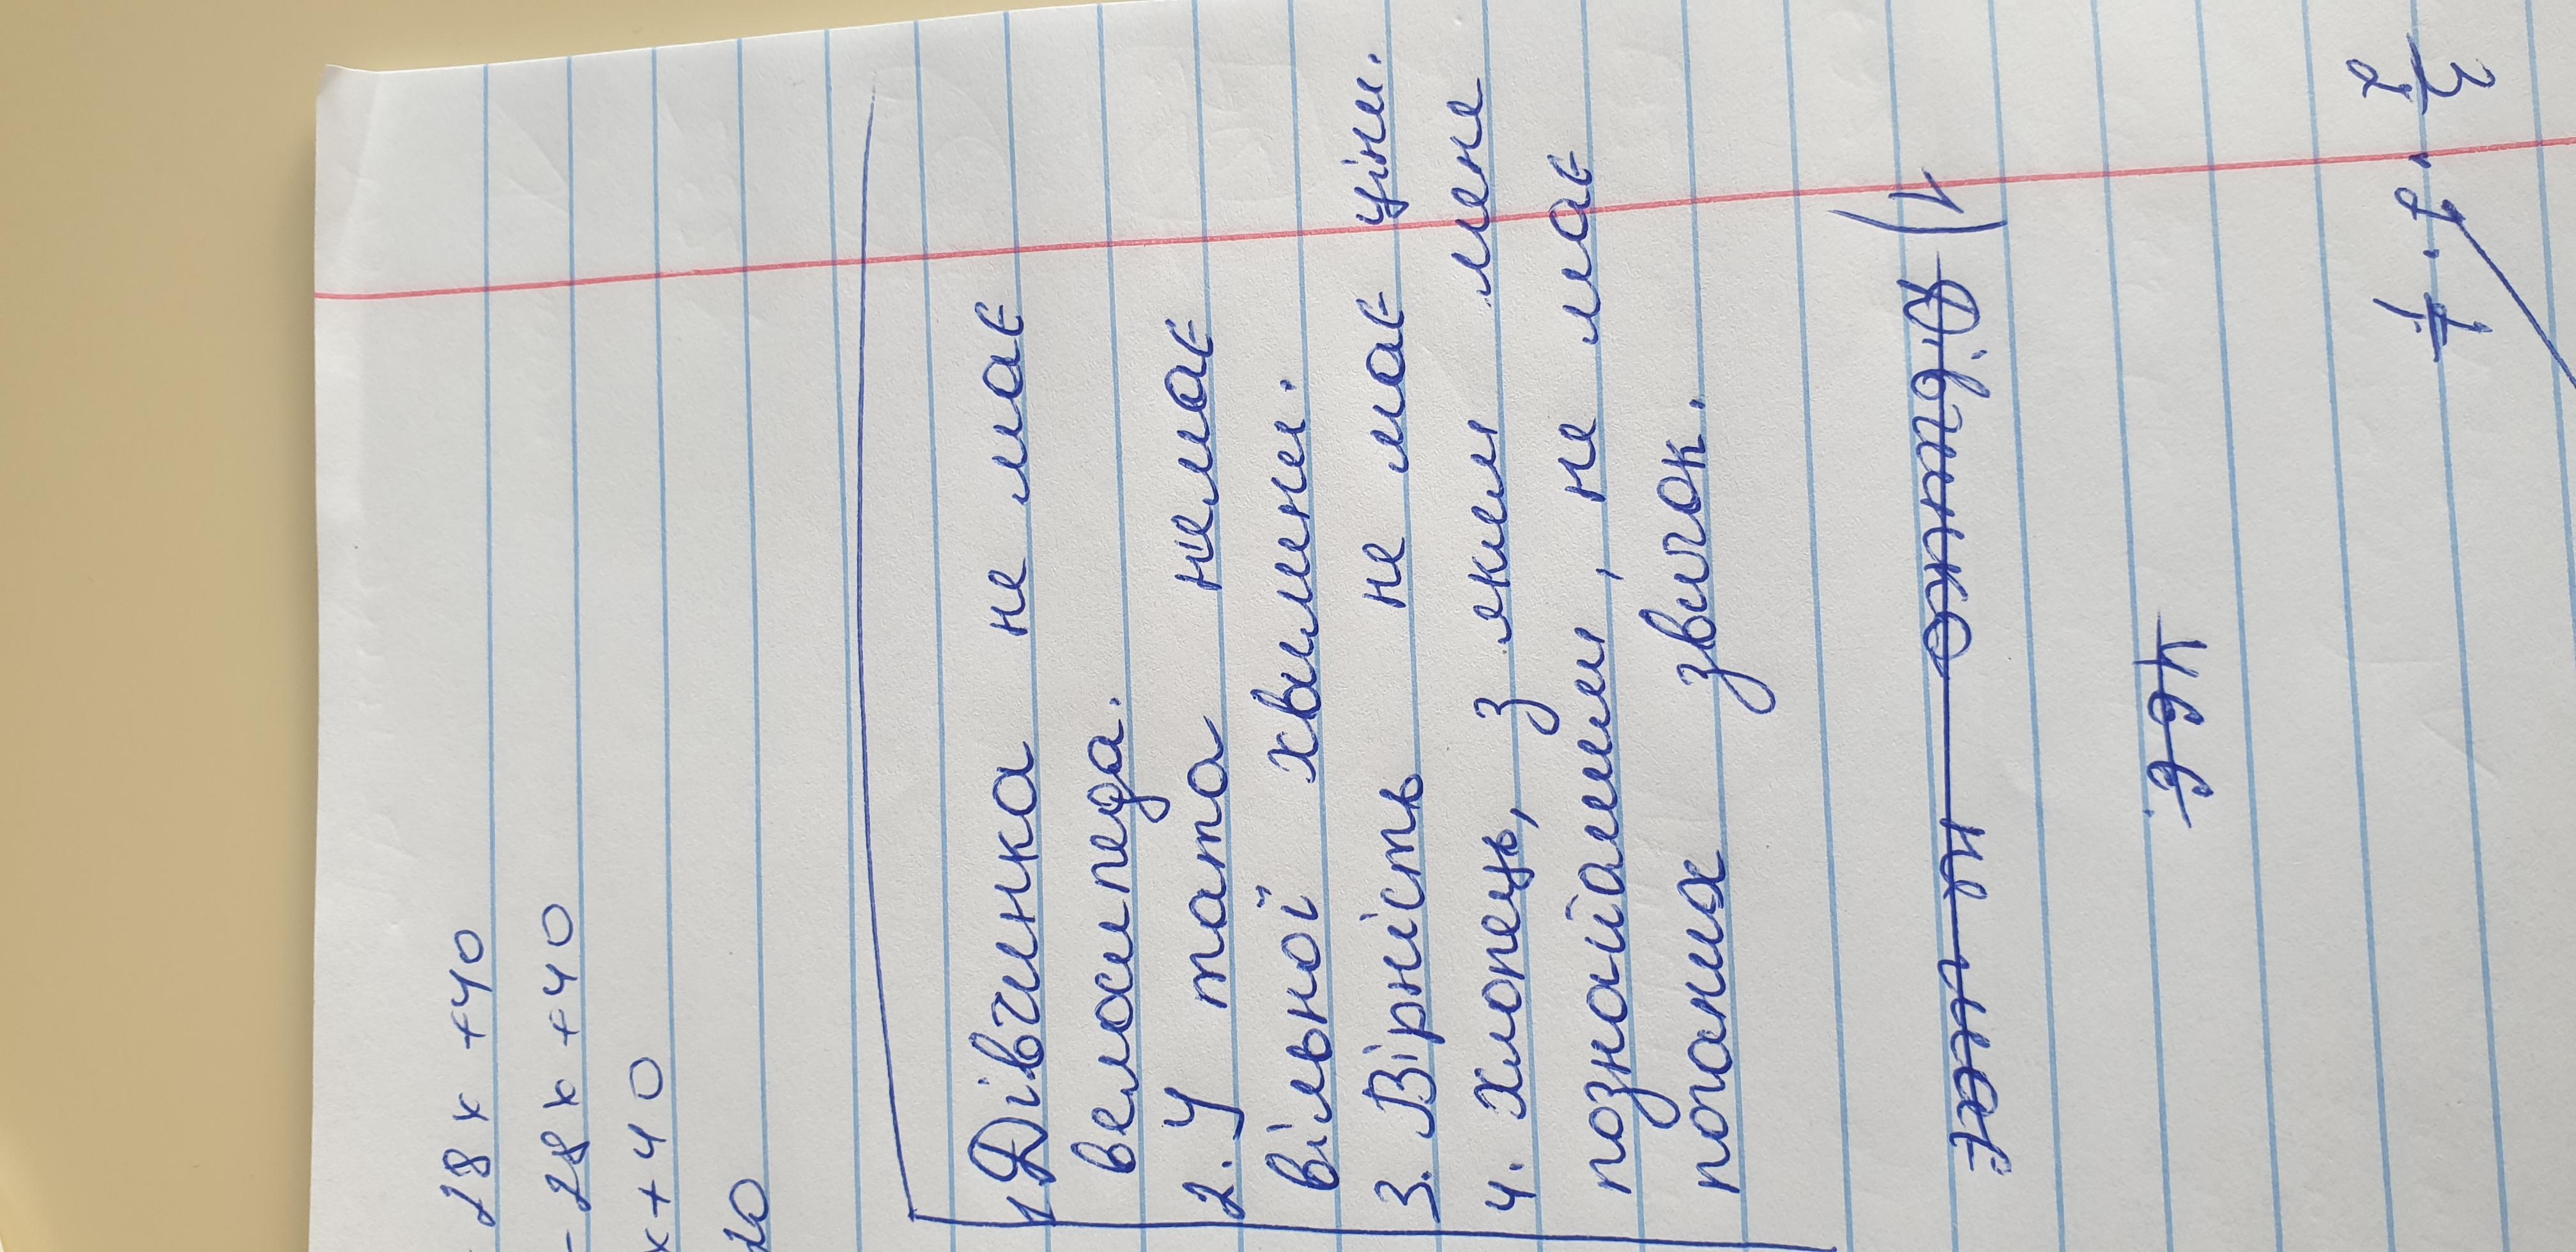 28x +40
- 28x +40
x+40
20
1 Дівчинка не має
велосипеда.
2. У тата немає
вільної хвилини.
3. Вірність не має ціни.
4. Хлопець, з яким мене
познайомили, не має
поганих звичок.
1)